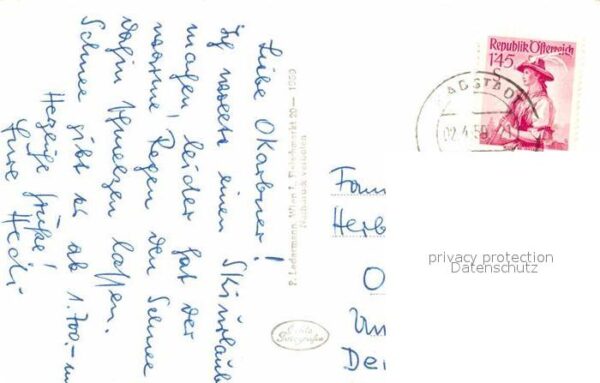 Liebe Okorbner!
Ich wollte einen Skiurlaub
machen, leider hat der
warme Regen den Schnee
dahin schmelzen lassen.
Schnee gibt es ab 1.700.- m
Herzliche Grüße!
Eure Hedi
P. Ledermann, Wien I, Fleischmarkt 20 — 1959
Nachdruck verboten
Echte Fotografie
Republik Österreich
1'45
S
RADSTADT
02.4.59
Fam
Herb
O
Un
Den
privacy protection
Datenschutz